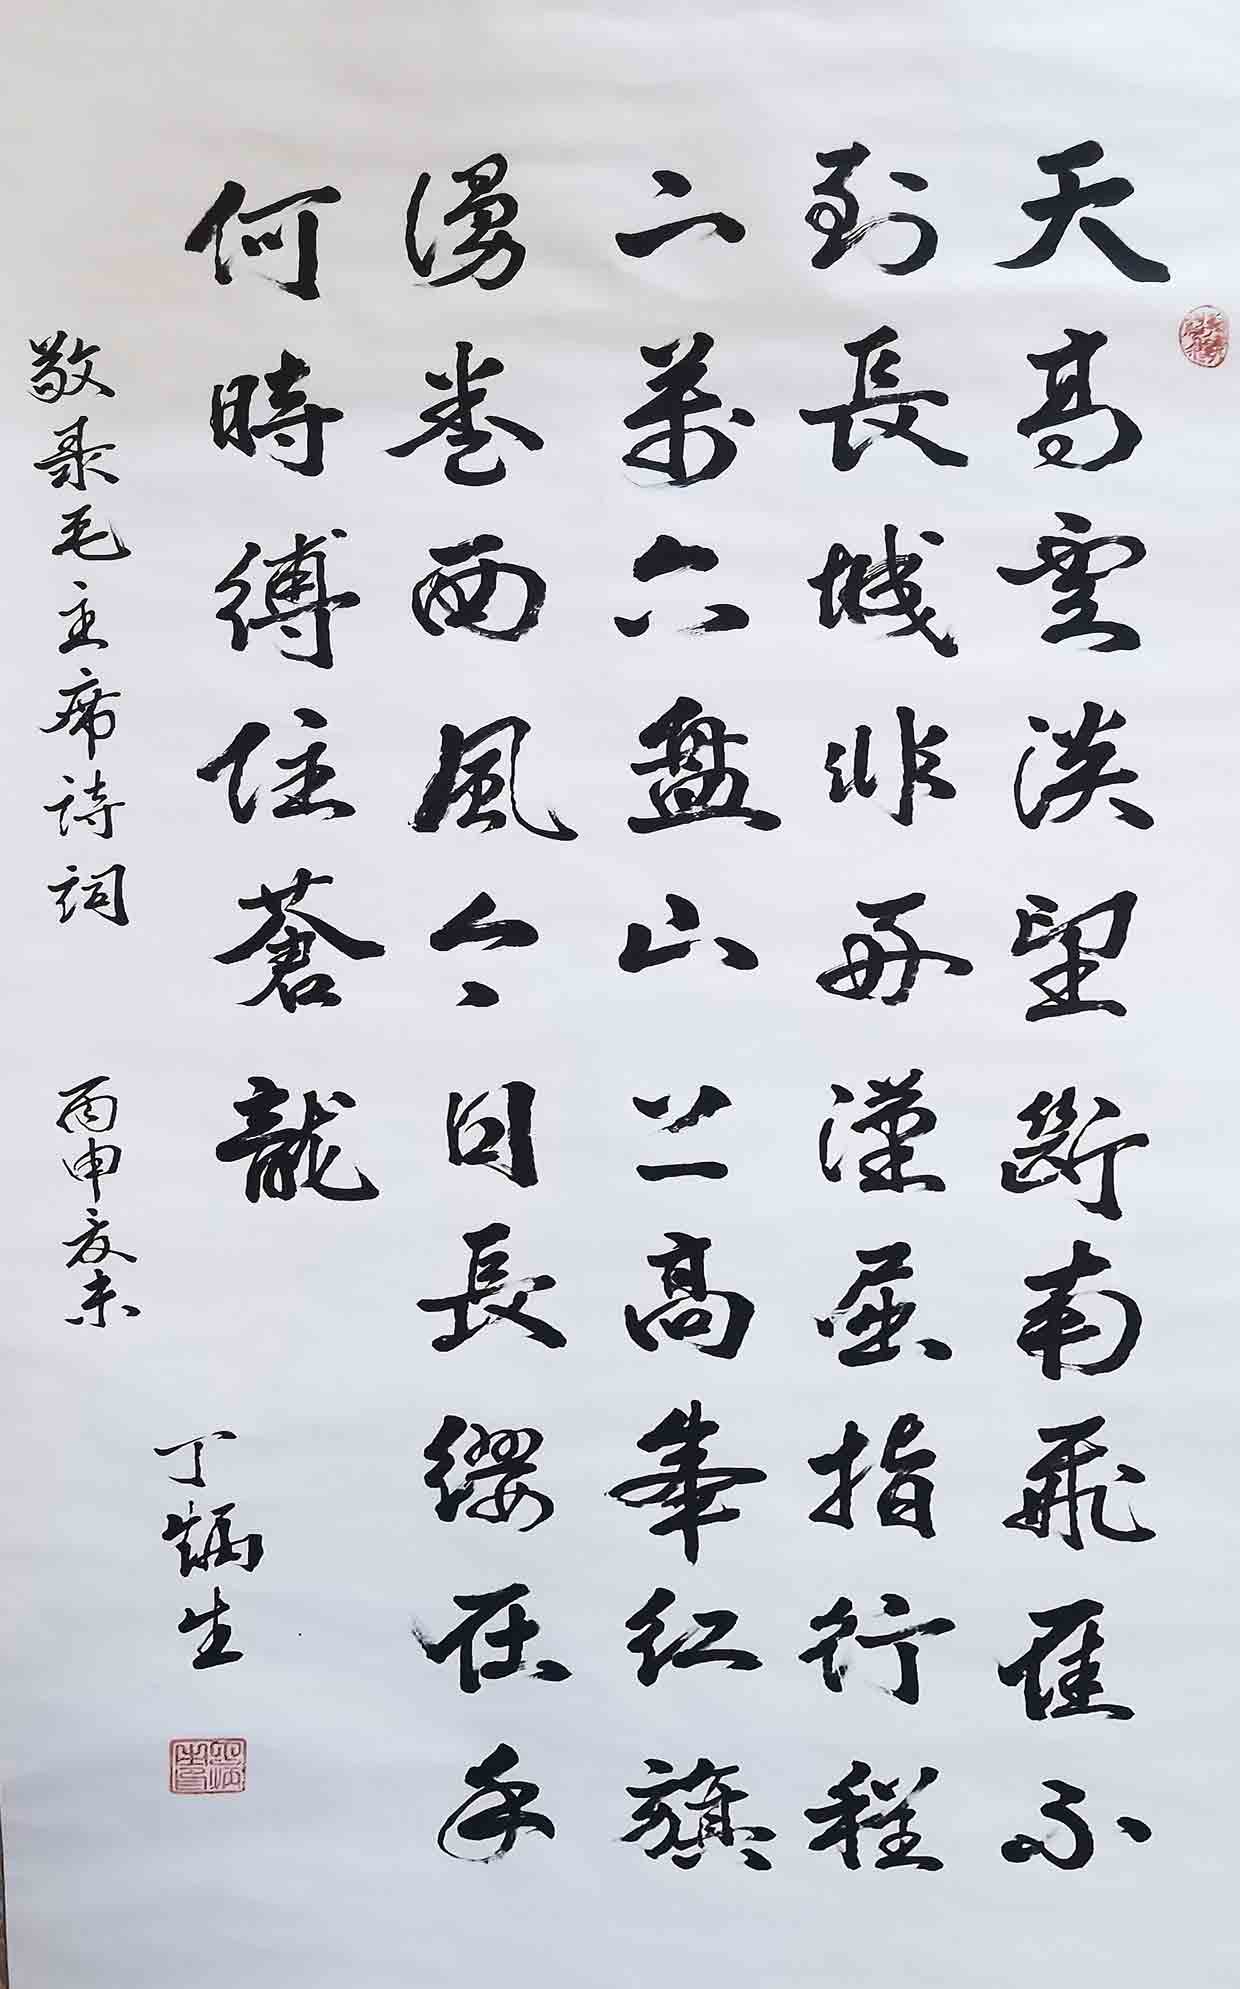 天高雲淡望斷南飛雁不
到長城非好漢屈指行程
二萬六盤山上高峯紅旗
漫卷西風今日長纓在手
何時縛住蒼龍
敬录毛主席詩詞 丙申夏末
丁炳生